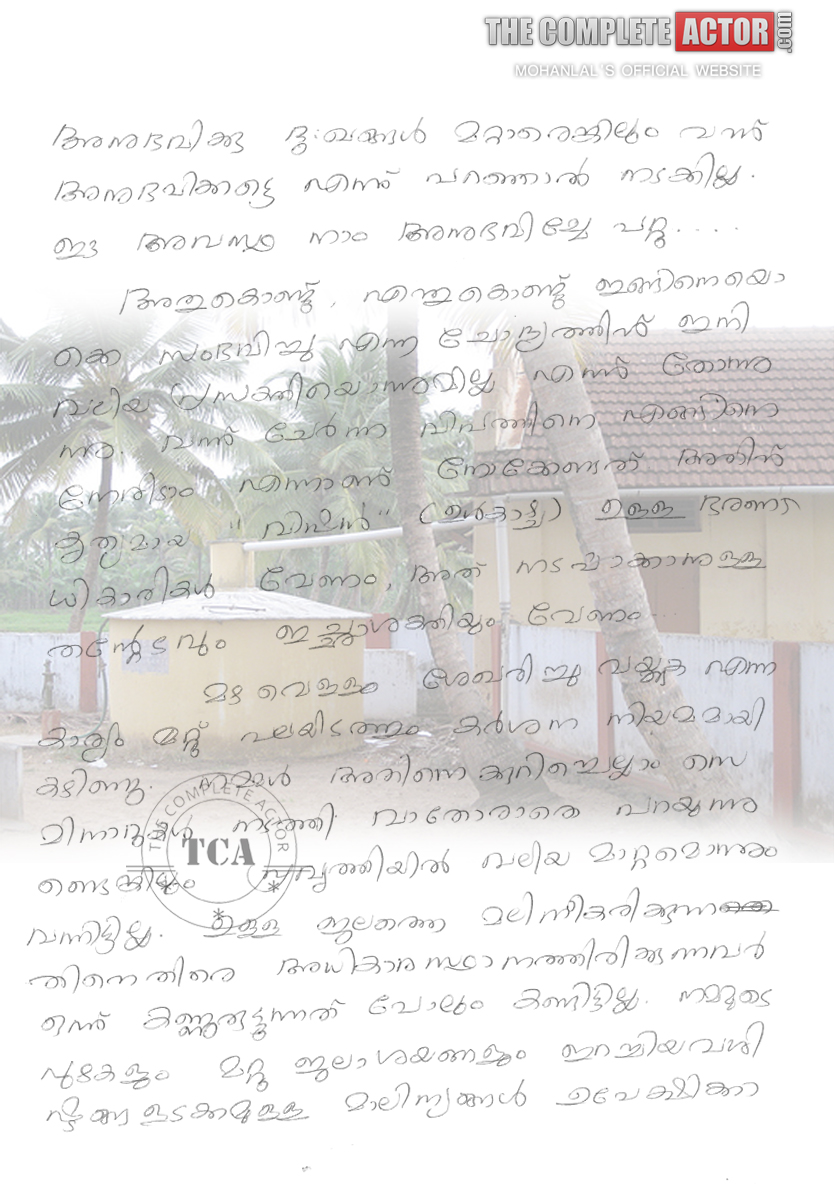 THE COMPLETE ACTOR .com
MOHANLAL'S OFFICIAL WEBSITE
അനുഭവിക്കു ദുഃഖങ്ങൾ മറ്റാരെങ്കിലും വന്ന്
അനുഭവിക്കട്ടെ എന്ന് പറഞ്ഞാൽ നടക്കില്ല.
ഈ അവസ്ഥ നാം അനുഭവിച്ചേ പറ്റൂ....
അതുകൊണ്ട്, എന്തുകൊണ്ട് ഇങ്ങിനെയൊ
ക്കെ സംഭവിച്ചു എന്ന ചോദ്യത്തിന് ഇനി
വലിയ പ്രസക്തിയൊന്നുമില്ല എന്ന് തോന്നു
ന്നു. വന്ന് ചേർന്ന വിപത്തിനെ എങ്ങിനെ
നേരിടാം എന്നാണ് നോക്കേണ്ടത് അതിന്
കൃത്യമായ "വിഷൻ" (ഉൾകാഴ്ച) ഉള്ള ഭരണാ
ധികാരികൾ വേണം, അത് നടപ്പാക്കാനുള്ള
തന്റേടവും ഇച്ഛാശക്തിയും വേണം..
മഴ വെള്ളം ശേഖരിച്ചു വയ്ക്കുക എന്ന
കാര്യം മറ്റ് പലയിടത്തും കർശന നിയമമായി
കഴിഞ്ഞു. നമ്മൾ അതിനെകുറിച്ചെല്ലാം സെ
മിനാറുകൾ നടത്തി വാതോരാതെ പറയുന്നു
ണ്ടെങ്കിലും പ്രവൃത്തിയിൽ വലിയ മാറ്റമൊന്നും
വന്നിട്ടില്ല. ഉള്ള ജലത്തെ മലിനീകരിക്കുന്ന
തിനെതിരെ അധികാര സ്ഥാനത്തിരിക്കുന്നവർ
ഒന്ന് കണ്ണുരുട്ടുന്നത് പോലും കണ്ടിട്ടില്ല. നമ്മുടെ
പുഴകളും മറ്റു ജലാശയങ്ങളും ഇറച്ചിയവശി
ഷ്ടങ്ങളടക്കമുള്ള മാലിന്യങ്ങൾ ഉപേക്ഷിക്കാ
THE COMPLETE ACTOR
TCA